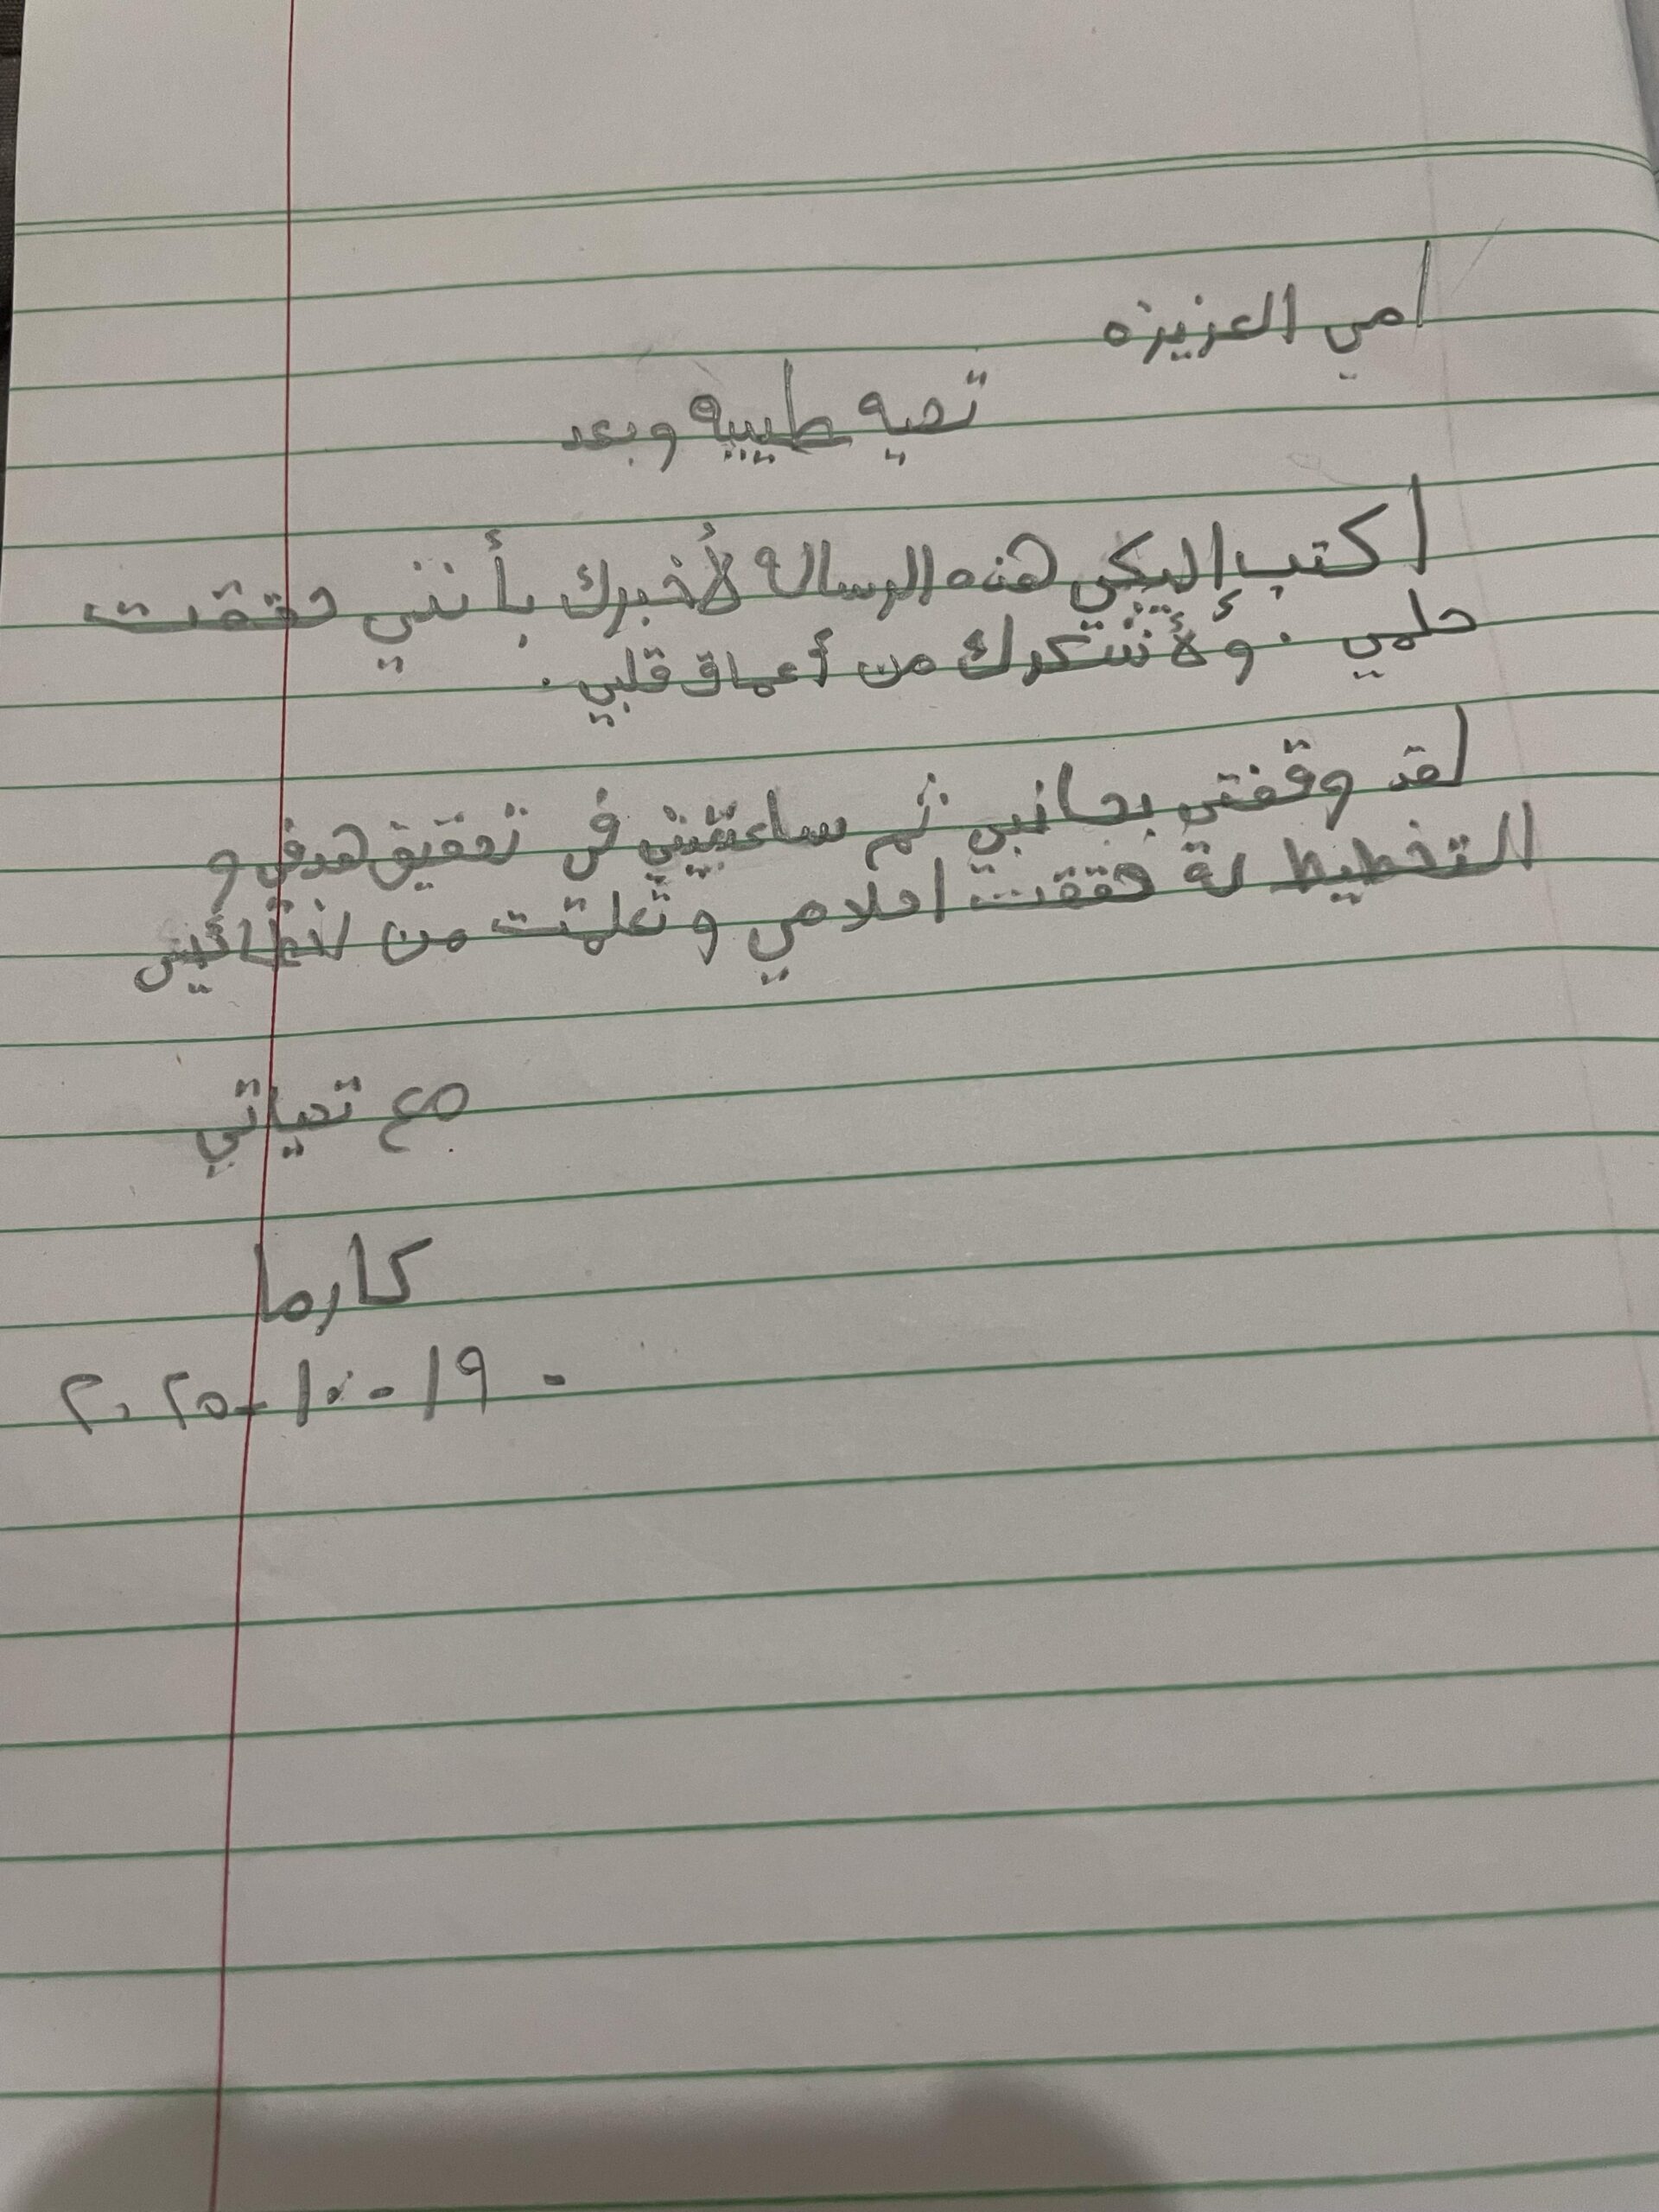 امي العزيزه
تحيه طيبيه وبعد
اكتب اليكي هذه الرساله لأخبرك بأنني حققت
حلمي . ولأشكرك من أعماق قلبي .
لقد وقفتي بجانبي ثم ساعتيني في تحقيق هدفي و
التخطيط لة حققت احلامي وتعلمت من
مع تحياتي
كارما
- ١٩ - ١٠ - ٢٠٢٥